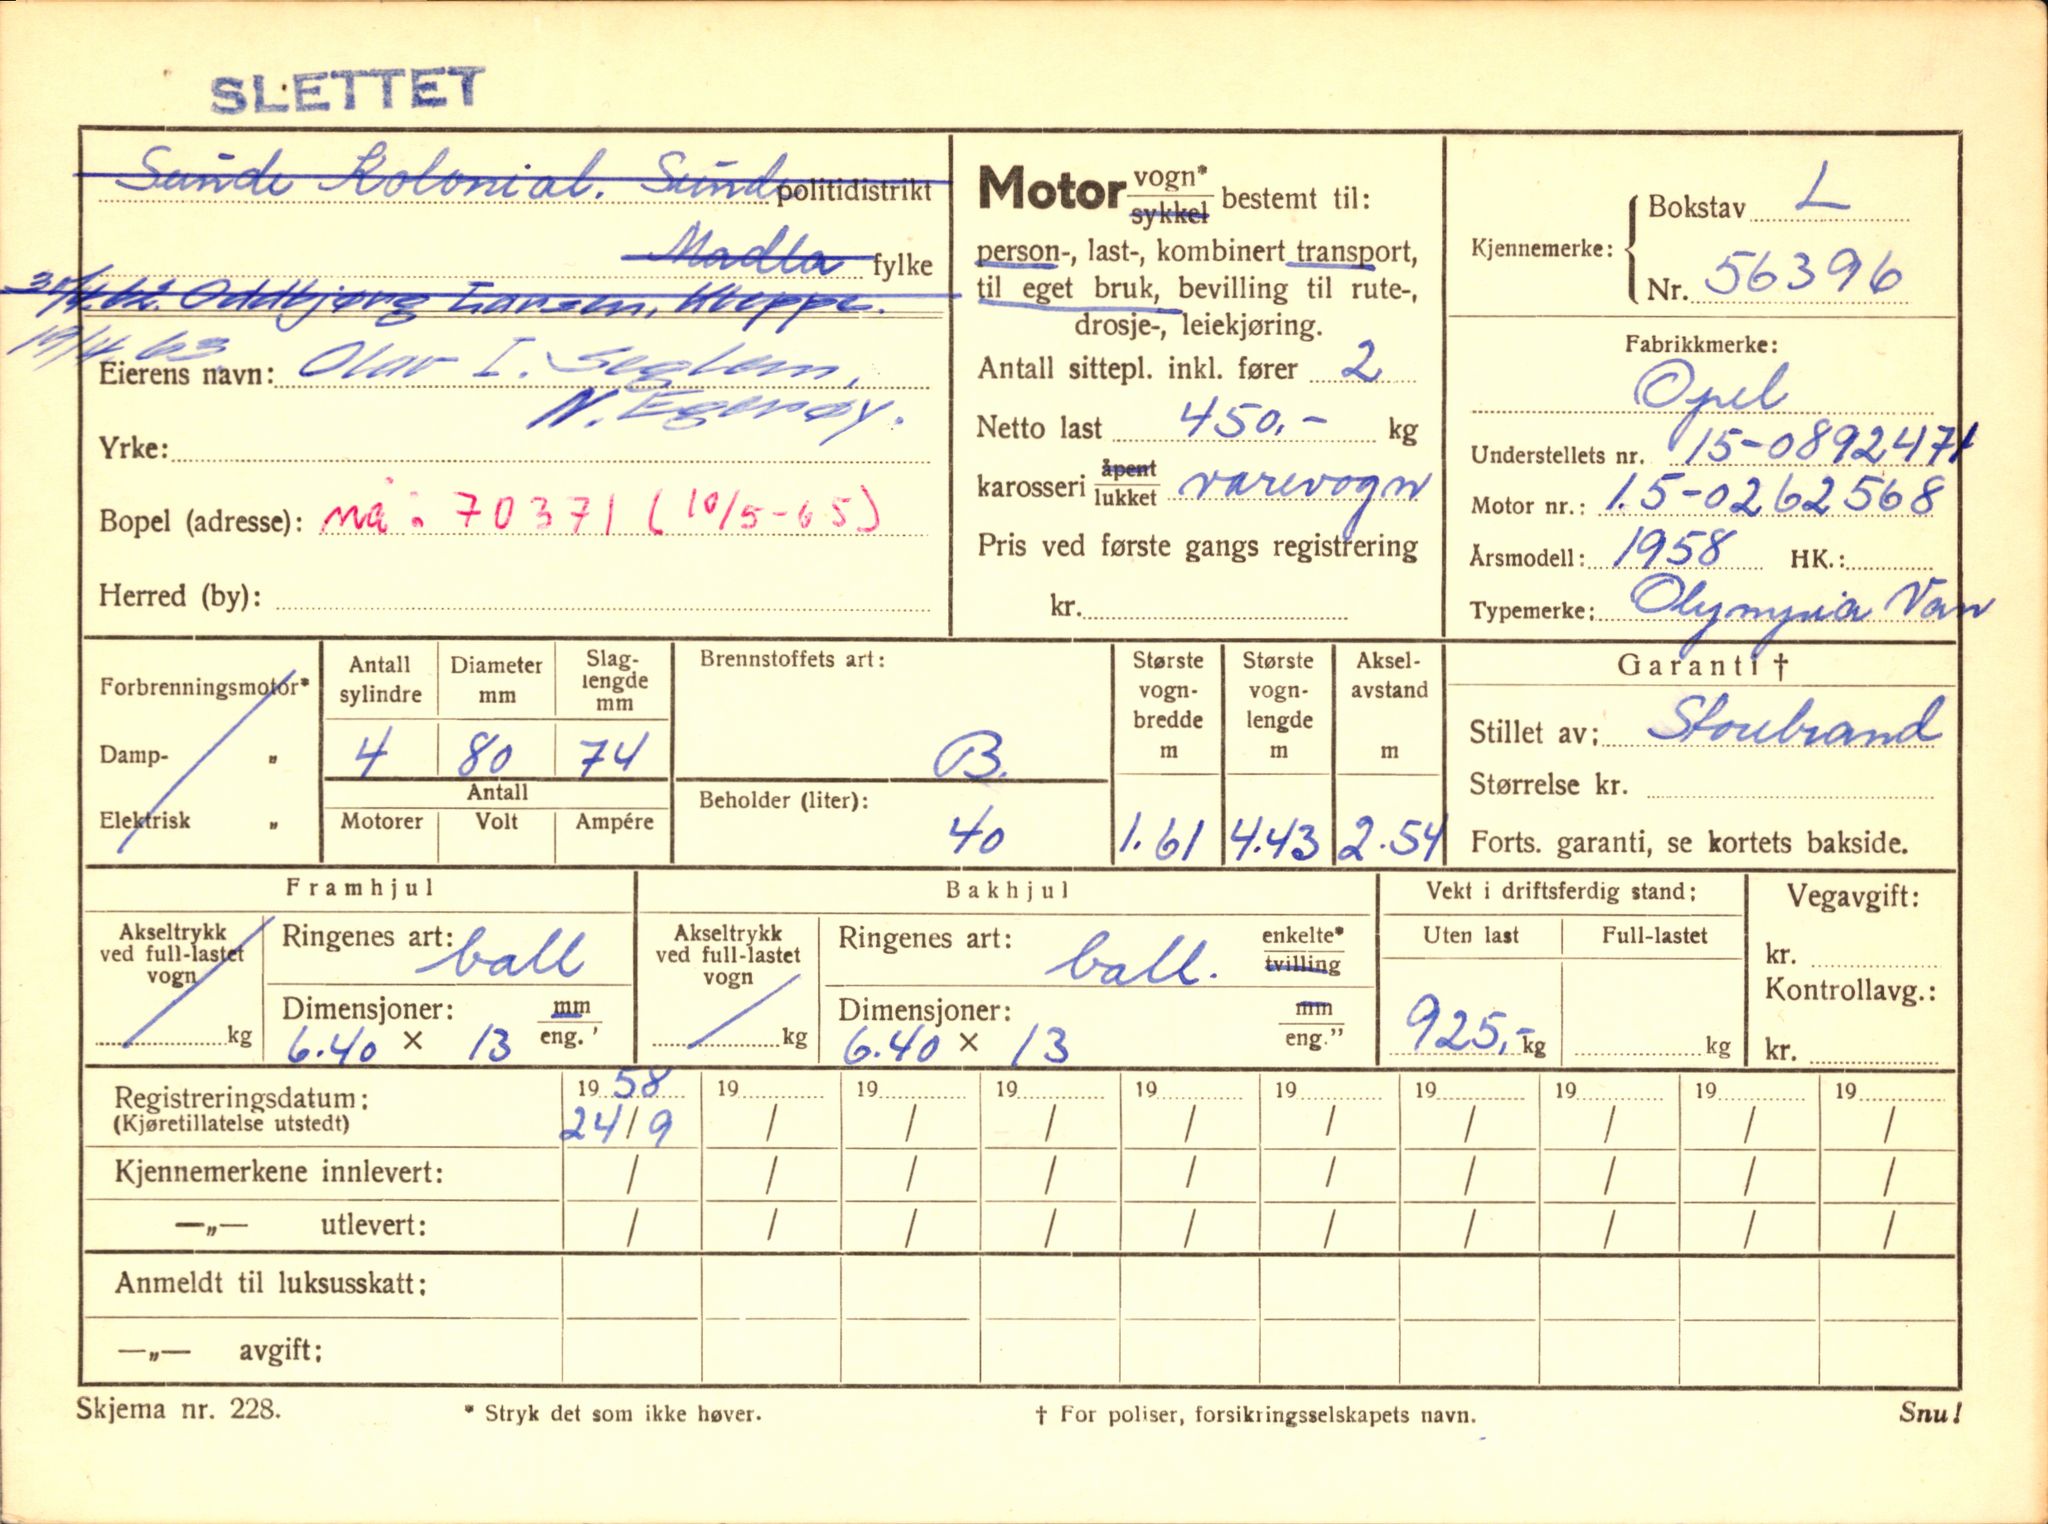 SLETTET
Sunde Kolonial. Sunde politidistrikt
Madla fylke
30/4.62. Oddbjørg Larsen, Kleppe.
19/4 63
Eierens navn: Olav I. Seglem,
N. Egerøy.
Yrke:
Bopel (adresse): nå: 70371 (10/5-65)
Herred (by):
Motor vogn* sykkel bestemt til:
person-, last-, kombinert transport,
til eget bruk, bevilling til rute-,
drosje-, leiekjøring.
Antall sittepl. inkl. fører 2
Netto last 450,- kg
karosseri åpent lukket varevogn
Pris ved første gangs registrering
kr.
Kjennemerke: Bokstav L
Nr. 56396
Fabrikkmerke:
Opel
Understellets nr. 15-0892471
Motor nr.: 1.5-0262568
Årsmodell: 1958 HK.:
Typemerke: Olympia Van
Forbrenningsmotor*
Damp- „
Elektrisk „
Antall sylindre Diameter mm Slag-lengde mm
4 80 74
Antall
Motorer Volt Ampére
Brennstoffets art:
B.
Beholder (liter):
40
Største vogn-bredde m Største vogn-lengde m Aksel-avstand m
1.61 4.43 2.54
Garanti †
Stillet av: Storebrand
Størrelse kr.
Forts. garanti, se kortets bakside.
Framhjul
Akseltrykk ved full-lastet vogn kg
Ringenes art: ball
Dimensjoner: mm
6.40 × 13 eng.'
Bakhjul
Akseltrykk ved full-lastet vogn kg
Ringenes art: ball. enkelte* tvilling
Dimensjoner: mm
6.40 × 13 eng."
Vekt i driftsferdig stand:
Uten last Full-lastet
925,- kg kg
Vegavgift:
kr.
Kontrollavg.:
kr.
Registreringsdatum: 19 58 19 19 19 19 19 19 19 19 19
(Kjøretillatelse utstedt) 24/9 / / / / / / / / /
Kjennemerkene innlevert: / / / / / / / / / /
—„— utlevert: / / / / / / / / / /
Anmeldt til luksusskatt:
—„— avgift:
Skjema nr. 228. * Stryk det som ikke høver. † For poliser, forsikringsselskapets navn. Snu!